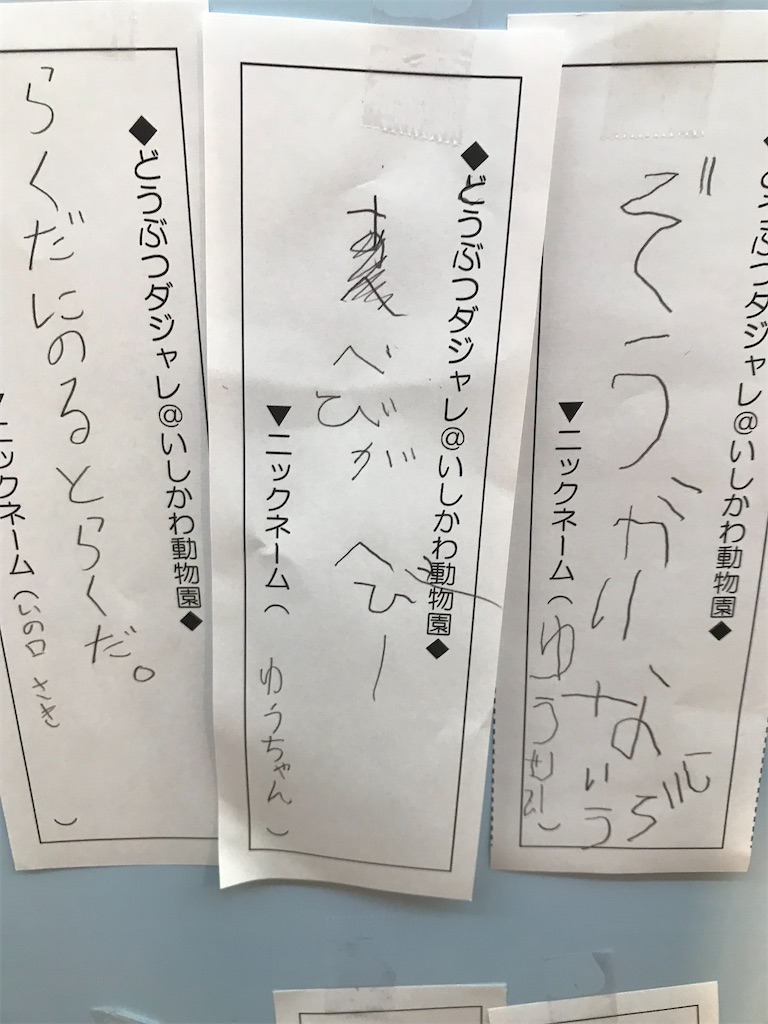 どうぶつダジャレ@いしかわ動物園
ぞうが
ニックネーム(ゆう
◆どうぶつダジャレ@いしかわ動物園◆
へびが
へびー
▼ニックネーム( ゆうちゃん )
◆どうぶつダジャレ@いしかわ動物園◆
らくだにのるとらくだ。
ニックネーム(いの口 さき )